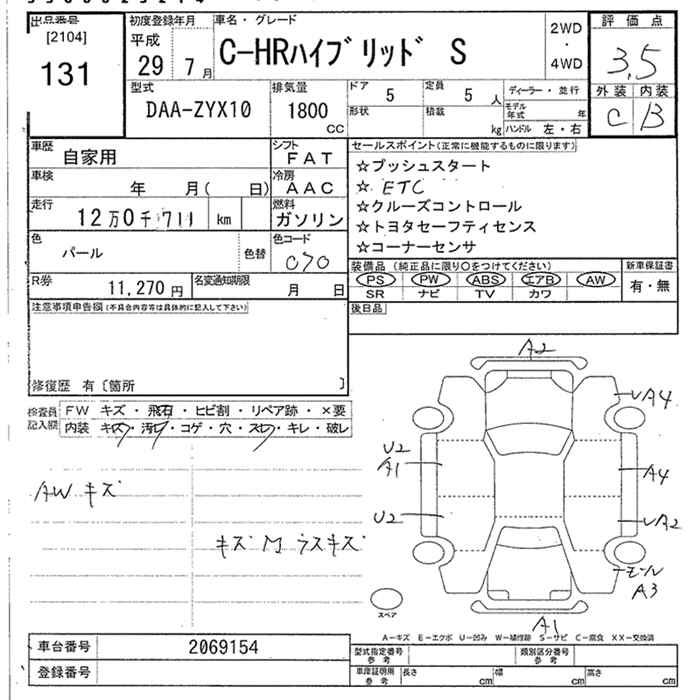 出品番号
[2104]
131
初度登録年月
平成
29 7月
車名・グレード
C-HRハイブリッド S
2WD
・
4WD
評価点
3.5
外装 内装
C B
型式
DAA-ZYX10
排気量
1800
CC
ドア 5
定員 5 人
形状
積載 kg
ディーラー・並行
モデル年式 年
ハンドル 左・右
車歴
自家用
シフト
FAT
車検
年 月( 日)
冷房
AAC
走行
12万0千711 km
燃料
ガソリン
色
パール
色替
色コード
070
R券
11,270円
名変通知期限
月 日
セールスポイント(正常に機能するものに限ります)
☆プッシュスタート
☆ETC
☆クルーズコントロール
☆トヨタセーフティセンス
☆コーナーセンサ
装備品(純正品に限り○をつけてください)
PS PW ABS エアB AW
SR ナビ TV カワ
新車保証書
有・無
後日品
注意事項申告欄(不具合内容等は具体的に記入して下さい)
修復歴 有〔箇所 〕
検査員記入欄
FW キズ・飛石・ヒビ割・リペア跡・×要
内装 キズ・汚レ・コゲ・穴・スレ・キレ・破レ
AWキズ
キズM ラスキズ
A2
A4
U2
A1
A4
U2
UA2
モール
A3
スペア
A1
A-キズ E-エクボ U-凹み W-補修跡 S-サビ C-腐食 XX-交換済
車台番号 2069154
登録番号
型式指定番号
参考
類別区分番号
参考
車庫証明用
参考
長さ cm
幅 cm
高さ cm